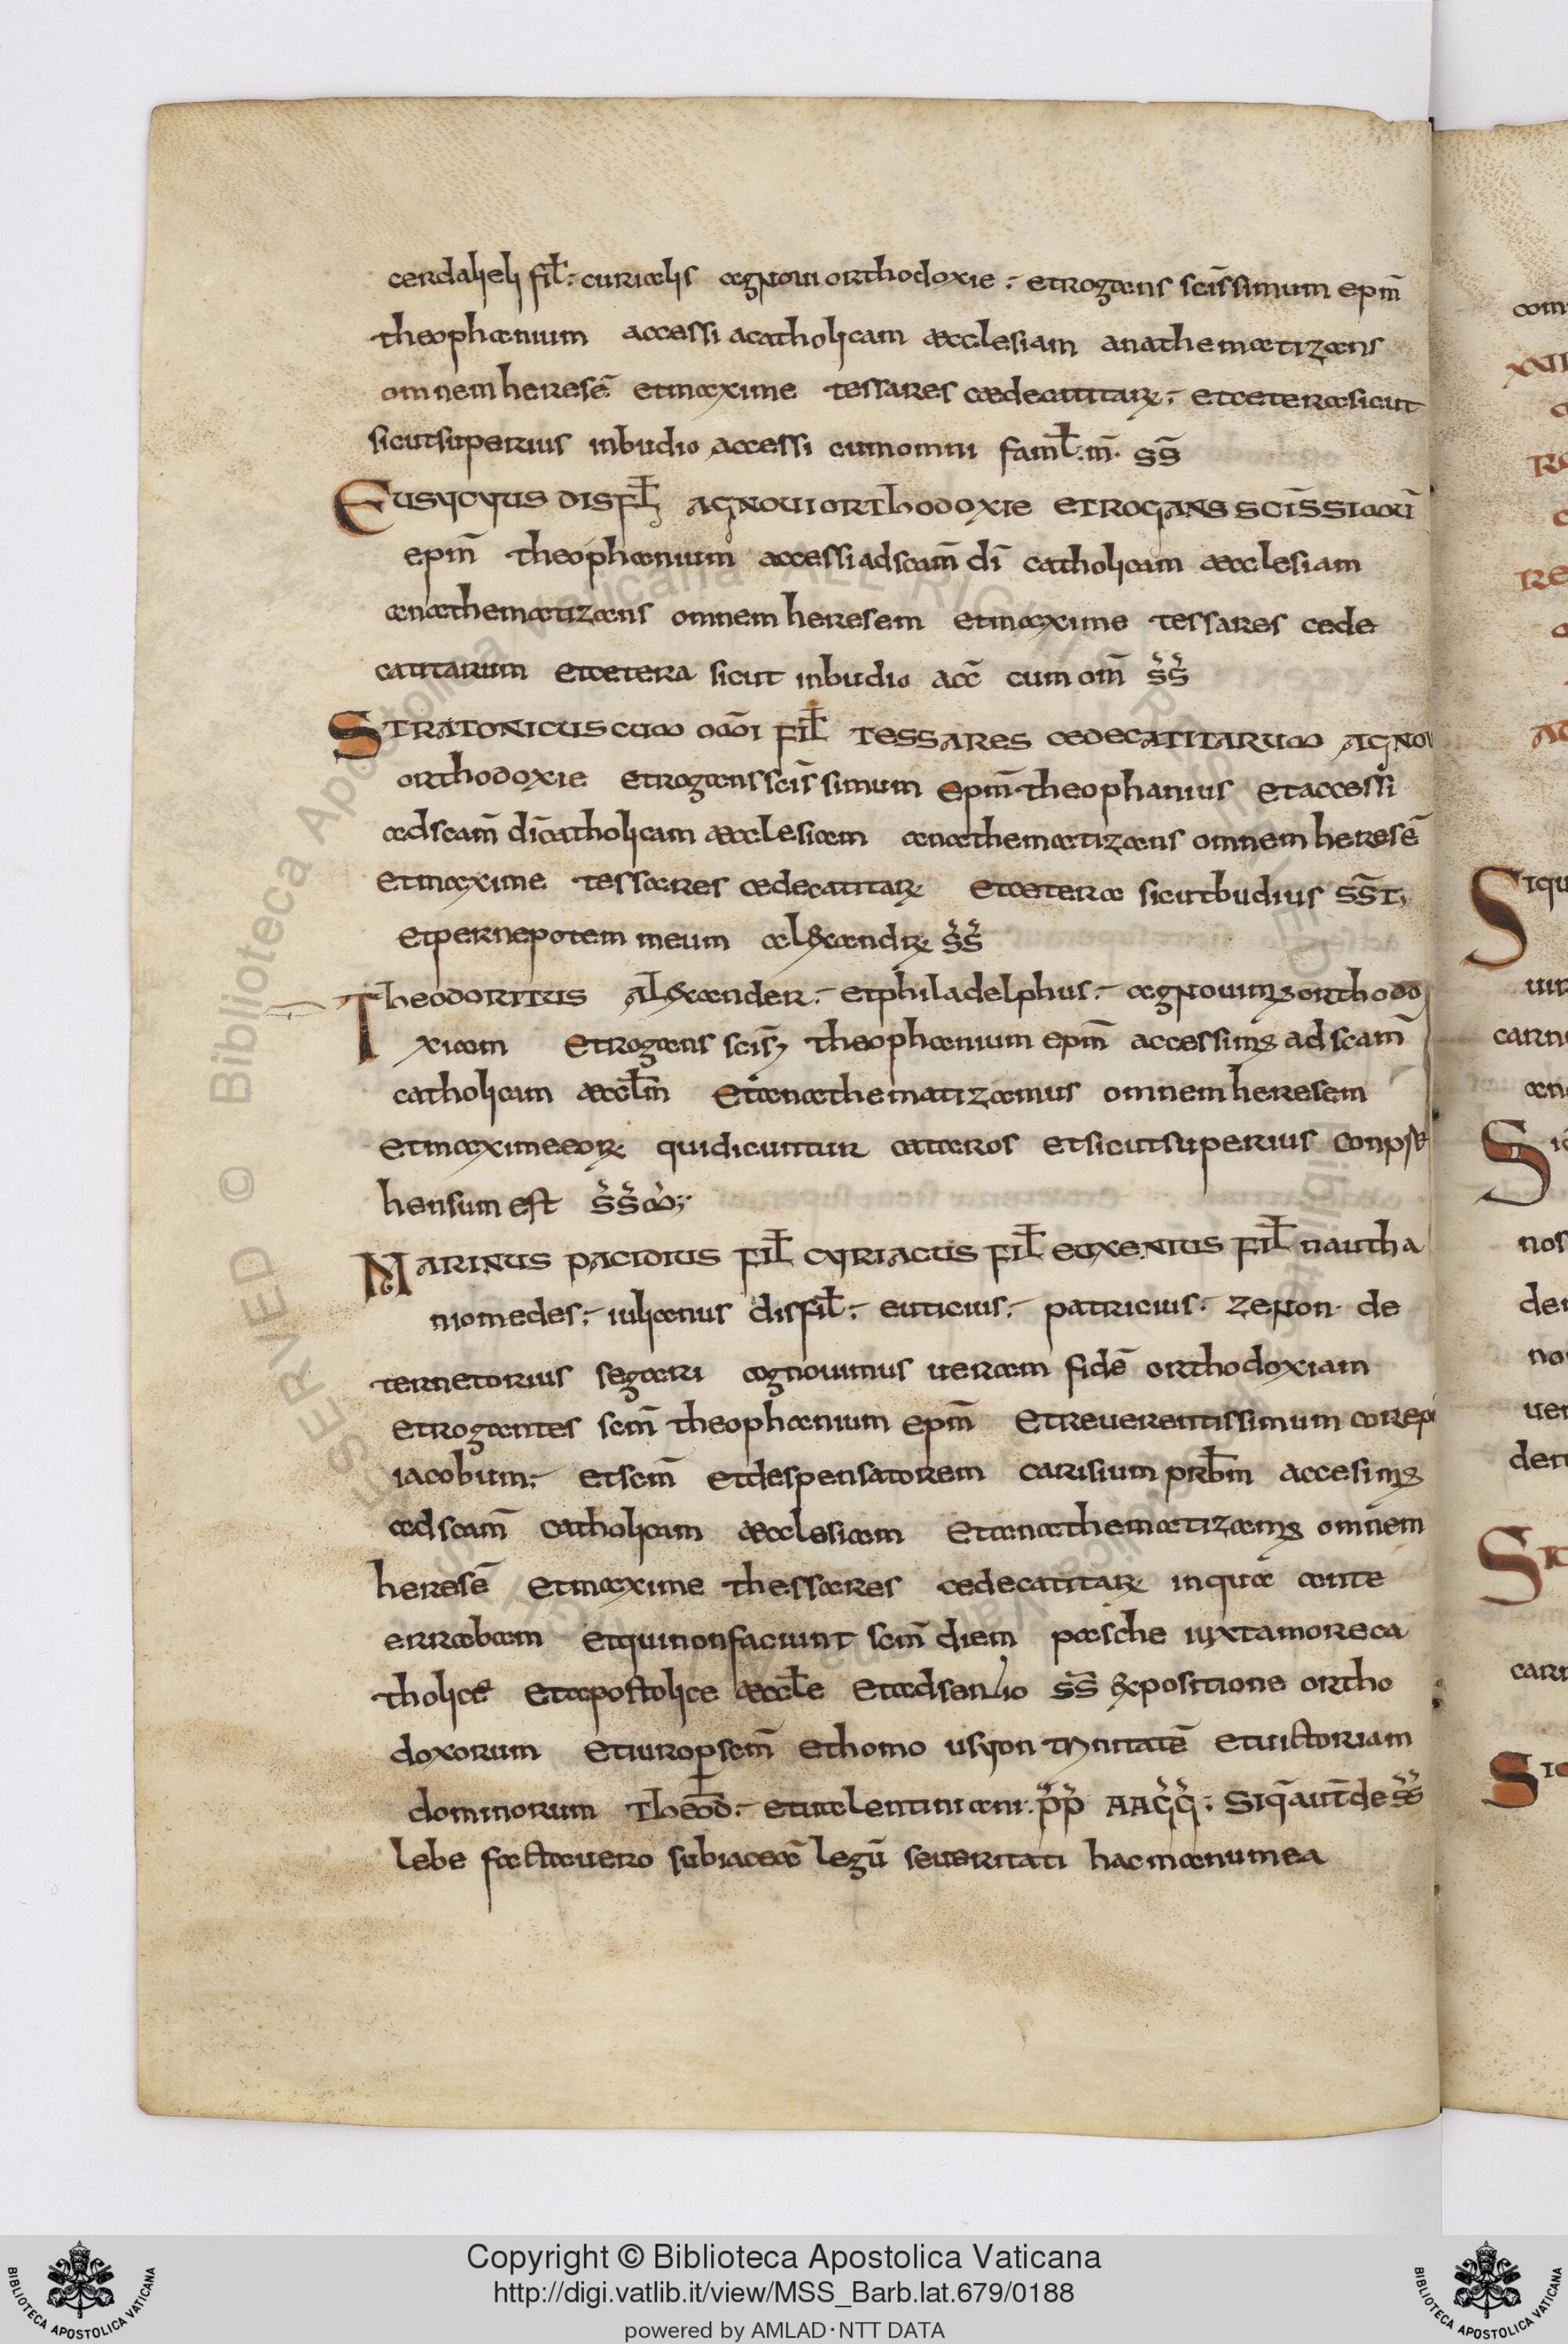 cerdalieli fił:- curialis agnoui orthodoxie:- et rogans scis̄simum ep̄m
theophanium accessi a catholicam ęcclesiam anathematizans
omnem heresē et maxime tessares cædecatitarꝝ:- et cetera sicut
sicut superius in budio accessi cum omni famł.m̄. ss̄
Eusycyus disfił agnoui orthodoxie et rogans scis̄simū
ep̄m theophanium accessi ad scam̄ dī catholicam ęcclesiam
anathematizans omnem heresem et maxime tessares cede
catitarum et cetera sicut in budio acc̄ cum om̄ ss
Stratonicus cum om̄i fił tessares cedecatitarum agnoui
orthodoxie et rogans scis̄simum ep̄m theophanius et accessi
ad scam̄ dī catholicam ęcclesiam anathematizans omnem heresē
et maxime tessares cedecatitarꝝ et cetera sicut budius ss̄t,
et per nepotem meum alexandrꝝ ss
Theodoritus Alexander:- et philadelphus:- agnouimus orthodo
xiam et rogans scis̄, theophanium ep̄m accessimus ad scam̄
catholicam ęccłm et anathematizamus omnem heresem
et maxime eorꝝ qui dicuntur cataros et sicut superius conpre
hensum est ss m;
Marinus pacidius fił cyriacus fił euxenius fił nautha
niomedes:- iulianus disfił:- euticius:- patricius. zenon. de
ternetorius segari agnouimus ueram fidē orthodoxiam
et rogantes scm̄ theophanium ep̄m et reuerentissimum corepi
iacobum:- et scm̄ et despensatorem carisium prb̄m accesimus
ad scam̄ catholicam ęcclesiam et anathematizamus omnem
heresē et maxime thessares cedecatitarꝝ in qua ante
errabam et qui non faciunt scm̄ diem pasche iuxta more ca
tholice et apostolice ęccłe et ad senlio ss̄ expositione ortho
doxorum et iuro per scm̄ et homo usyon trinitatē et uictoriam
dominorum Theod̄:- et ualentiniani. pp AAGG: Siq̄ aut̄ de ss
lebe facta uero subiaceā legū seueritati hac manu mea
Copyright © Biblioteca Apostolica Vaticana
http://digi.vatlib.it/view/MSS_Barb.lat.679/0188
powered by AMLAD·NTT DATA